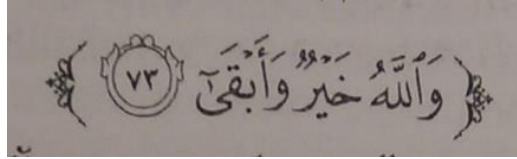 ﴿ وَٱللَّهُ خَيْرٌۭ وَأَبْقَىٰٓ ٧٣ ﴾